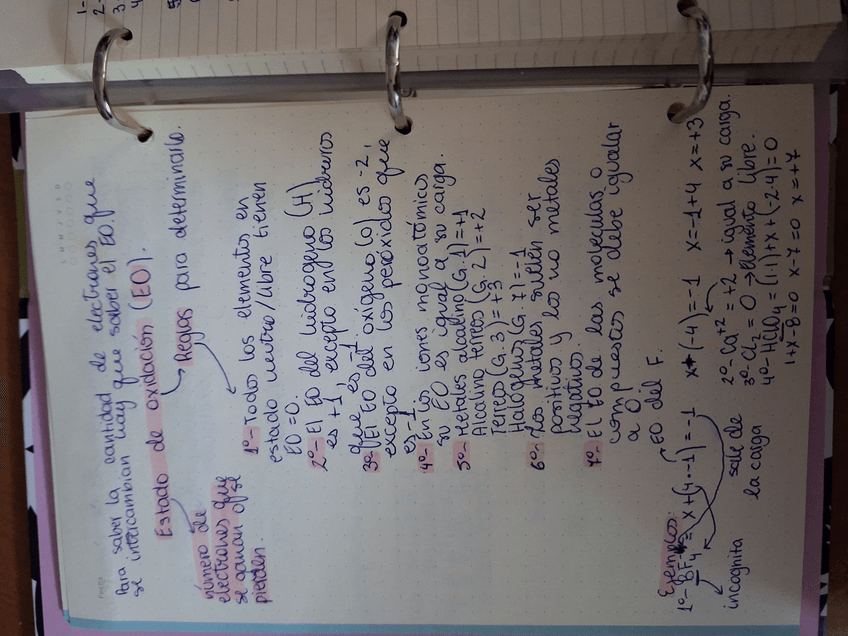 Para saber la cantidad de electrones que
se intercambian hay que saber el EO.
Estado de oxidación (EO).
número de
electrones que
se ganan o se
pierden.
Reglas para determinarlo.
1º- Todos los elementos en
estado neutro/libre tienen
EO=0.
2º- El EO del hidrogeno (H)
es +1, excepto en los hidruros
que es -1.
3º- El EO del oxígeno (O) es -2,
excepto en los peroxidos que
es -1.
4º- En los iones monoatómicos
su EO es igual a su carga.
5º- Metales alcalino (G.1)=+1
Alcalino terreos (G. 2)=+2
Terreos (G, 3)=+3
Halógenos (G, 7)=-1
6º- Los metales suelen ser
positivos y los no metales
negativos.
7º- El EO de las moleculas o
compuestos se debe igualar
a 0.
Ejemplos:
EO del F.
1º- BF4- = x+(4·-1)=-1 x+(-4)=-1 x=-1+4 x=+3
incognita
sale de
la carga
2º- Ca+2 = +2 → igual a su carga.
3º- Cl2 = 0 → elemento libre.
4º- HClO4 = (1·1)+x+(-2·4)=0
1+x-8=0 x-7=0 x=+7